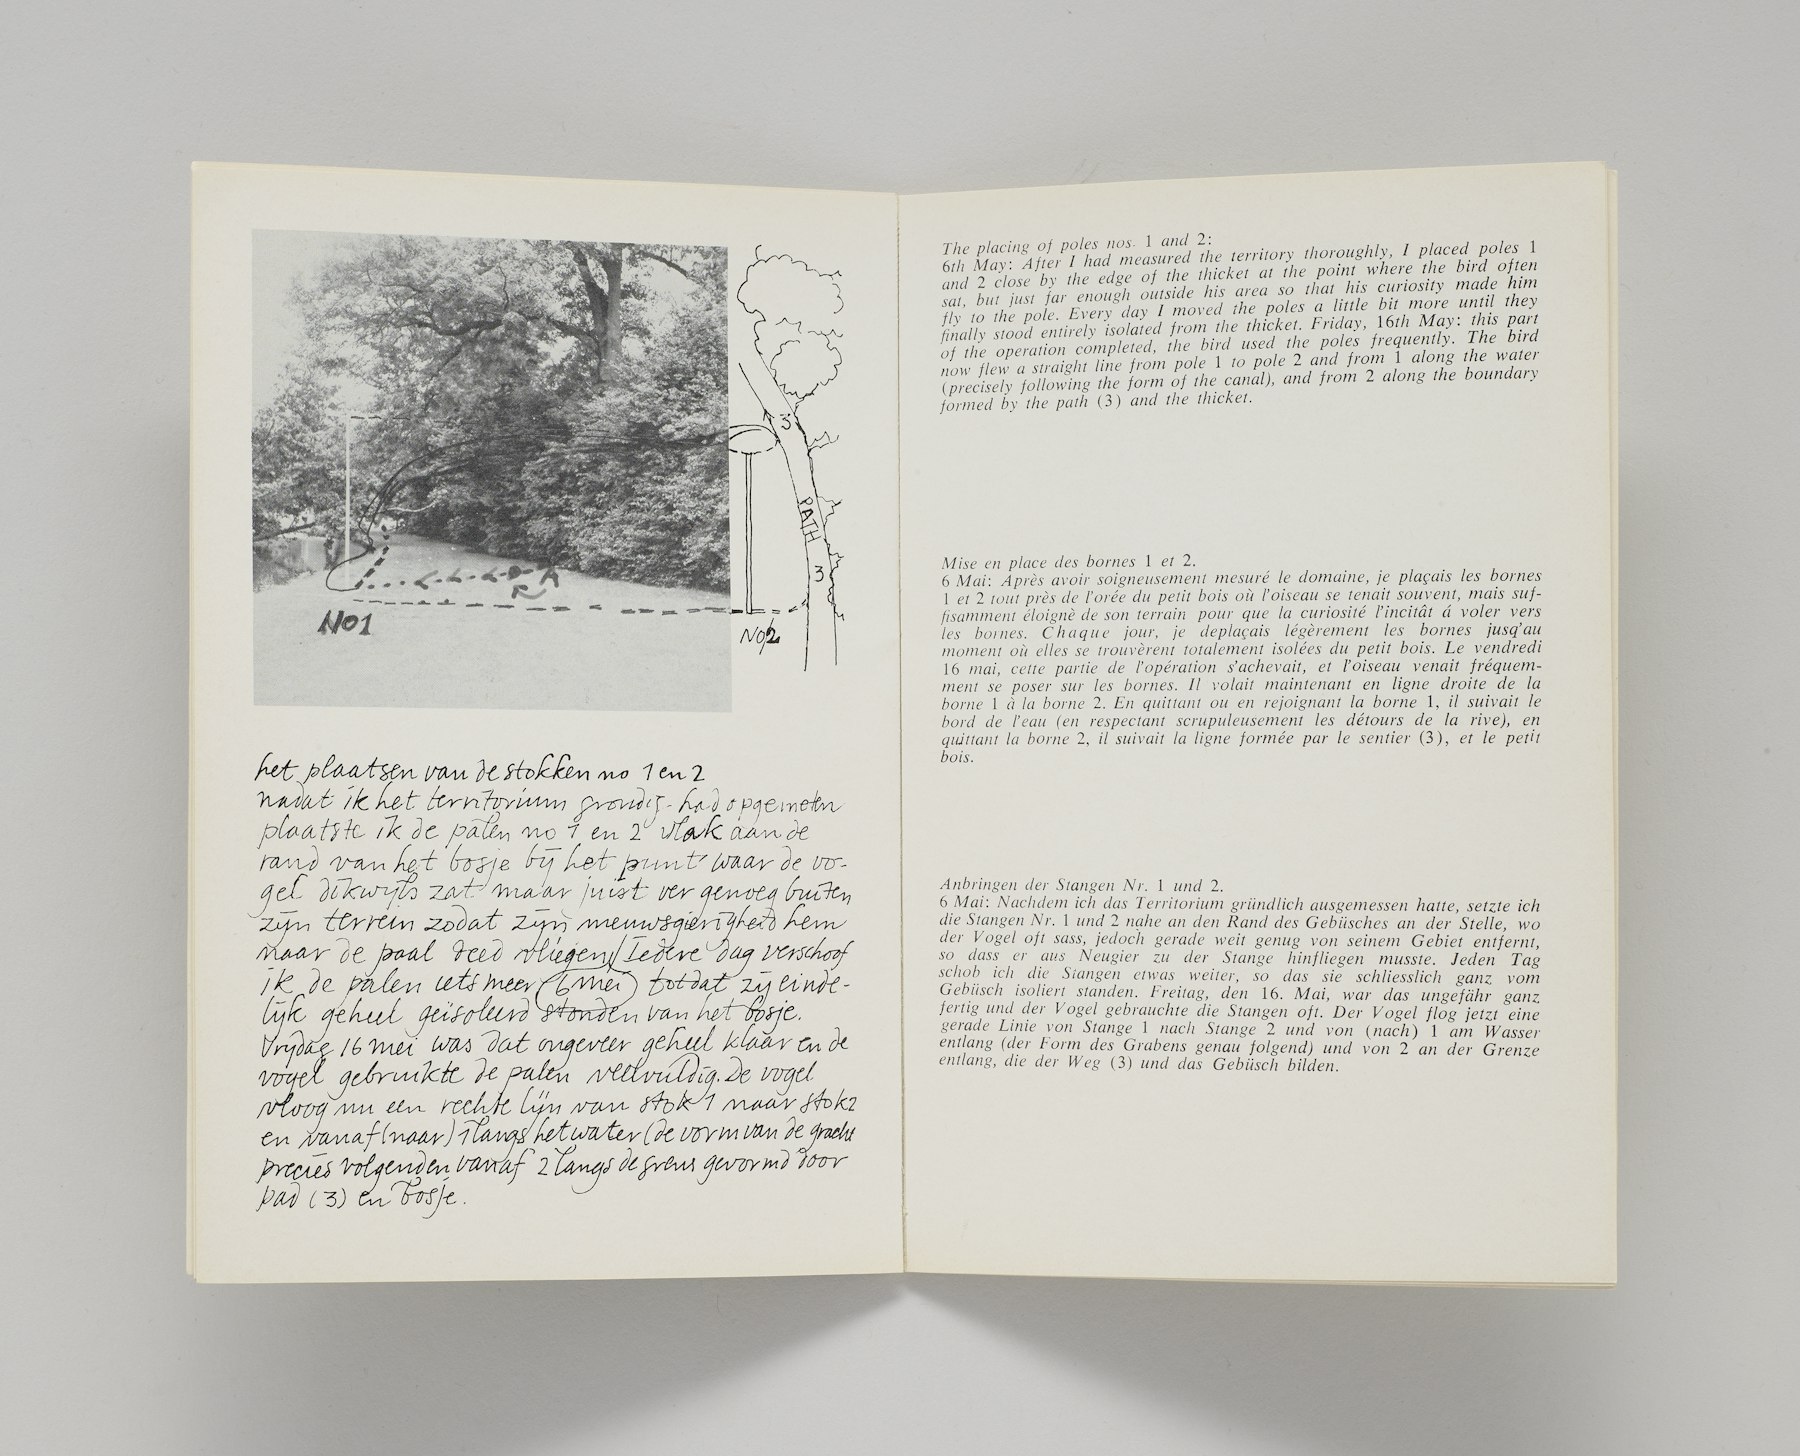 3
PATH
3
NO1
NO2
het plaatsen van de stokken no 1 en 2
nadat ik het territorium grondig had opgemeten
plaatste ik de palen no 1 en 2 vlak aan de
rand van het bosje bij het punt waar de vo-
gel dikwijls zat maar juist ver genoeg buiten
zijn terrein zodat zijn nieuwsgierigheid hem
naar de paal deed vliegen / Iedere dag verschoof
ik de palen iets meer (6 mei) totdat zij einde-
lijk geheel geïsoleerd stonden van het bosje.
Vrijdag 16 mei was dat ongeveer geheel klaar en de
vogel gebruikte de palen veelvuldig. De vogel
vloog nu een rechte lijn van stok 1 naar stok 2
en vanaf (naar) 1 langs het water (de vorm van de gracht
precies volgend en vanaf 2 langs de grens gevormd door
pad (3) en bosje.
The placing of poles nos. 1 and 2:
6th May: After I had measured the territory thoroughly, I placed poles 1
and 2 close by the edge of the thicket at the point where the bird often
sat, but just far enough outside his area so that his curiosity made him
fly to the pole. Every day I moved the poles a little bit more until they
finally stood entirely isolated from the thicket. Friday, 16th May: this part
of the operation completed, the bird used the poles frequently. The bird
now flew a straight line from pole 1 to pole 2 and from 1 along the water
(precisely following the form of the canal), and from 2 along the boundary
formed by the path (3) and the thicket.
Mise en place des bornes 1 et 2.
6 Mai: Après avoir soigneusement mesuré le domaine, je plaçais les bornes
1 et 2 tout près de l'orée du petit bois où l'oiseau se tenait souvent, mais suf-
fisamment éloignè de son terrain pour que la curiosité l'incitât á voler vers
les bornes. Chaque jour, je deplaçais légèrement les bornes jusq'au
moment où elles se trouvèrent totalement isolées du petit bois. Le vendredi
16 mai, cette partie de l'opération s'achevait, et l'oiseau venait fréquem-
ment se poser sur les bornes. Il volait maintenant en ligne droite de la
borne 1 à la borne 2. En quittant ou en rejoignant la borne 1, il suivait le
bord de l'eau (en respectant scrupuleusement les détours de la rive), en
quittant la borne 2, il suivait la ligne formée par le sentier (3), et le petit
bois.
Anbringen der Stangen Nr. 1 und 2.
6 Mai: Nachdem ich das Territorium gründlich ausgemessen hatte, setzte ich
die Stangen Nr. 1 und 2 nahe an den Rand des Gebüsches an der Stelle, wo
der Vogel oft sass, jedoch gerade weit genug von seinem Gebiet entfernt,
so dass er aus Neugier zu der Stange hinfliegen musste. Jeden Tag
schob ich die Stangen etwas weiter, so das sie schliesslich ganz vom
Gebüsch isoliert standen. Freitag, den 16. Mai, war das ungefähr ganz
fertig und der Vogel gebrauchte die Stangen oft. Der Vogel flog jetzt eine
gerade Linie von Stange 1 nach Stange 2 und von (nach) 1 am Wasser
entlang (der Form des Grabens genau folgend) und von 2 an der Grenze
entlang, die der Weg (3) und das Gebüsch bilden.